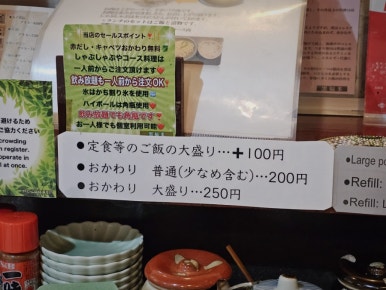 当店のセールスポイント
赤だし・キャベツおかわり無料
しゃぶしゃぶやコース料理は
一人前からご注文頂けます
飲み放題も一人前から注文OK
水はかち割り氷を使用
ハイボールは角瓶使用
飲み放題でも角瓶です
お一人様でも個室利用可能
避けるため
ご協力ください
crowding
register.
operate in
l at once.
●定食等のご飯の大盛り…＋100円
●おかわり 普通(少なめ含む)…200円
●おかわり 大盛り…250円
Large po
Refill:
Refill: L
一味